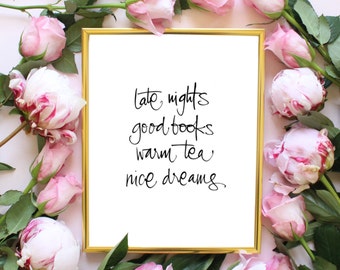 late nights
good books
warm tea
nice dreams